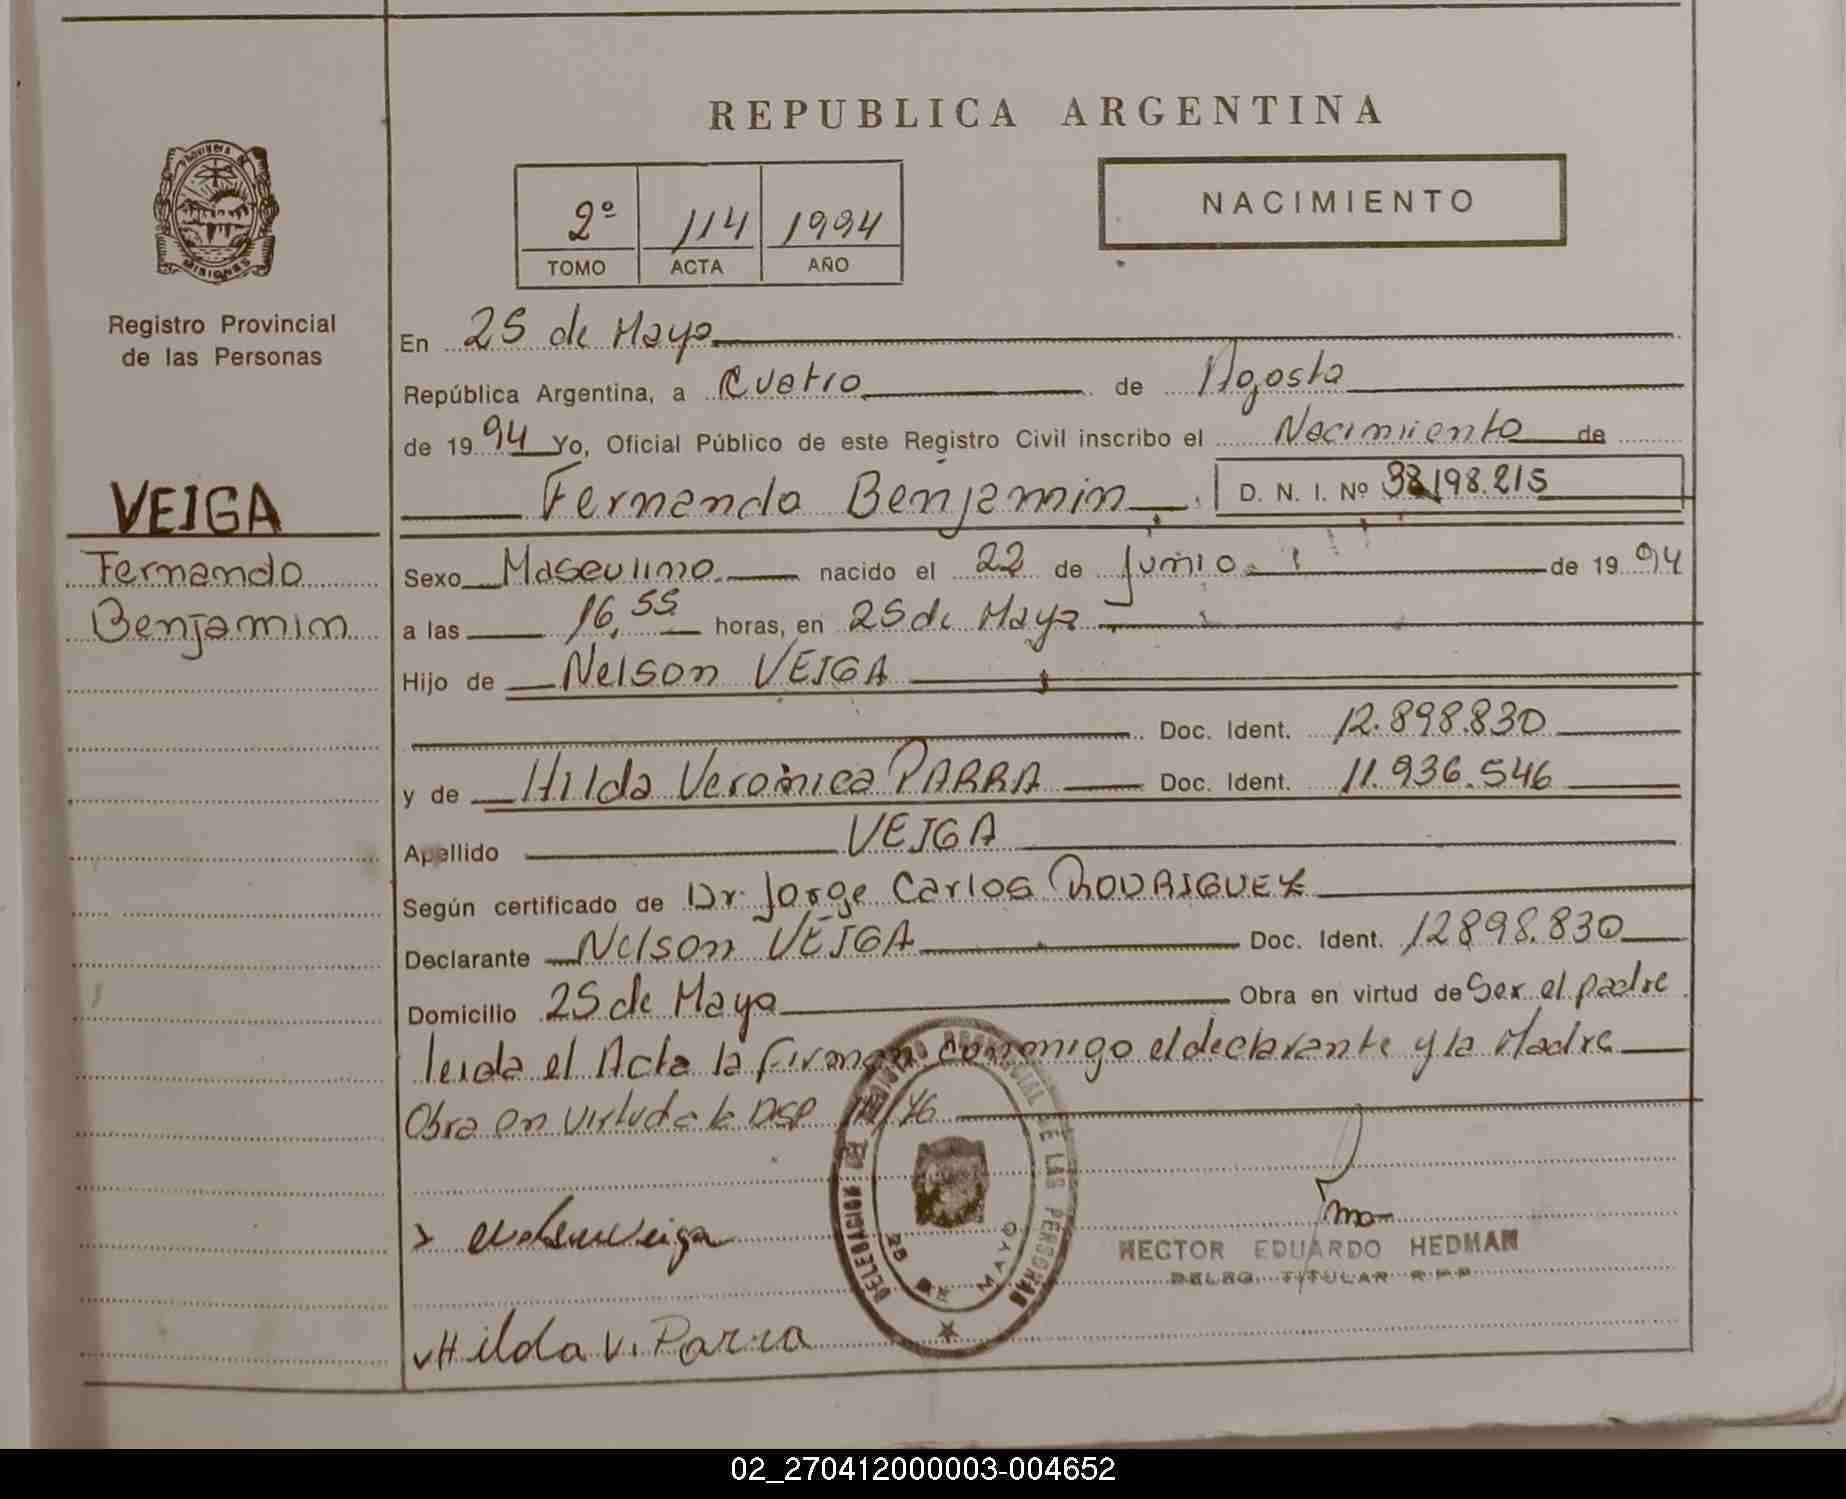 REPUBLICA ARGENTINA
PROVINCIA DE
MISIONES
Registro Provincial
de las Personas
2º 114 1994
TOMO ACTA AÑO
NACIMIENTO
En 25 de Mayo
República Argentina, a Cuatro de Agosto
de 1994 Yo, Oficial Público de este Registro Civil inscribo el Nacimiento de
Fernando Benjamin D. N. I. Nº 38.198.215
VEIGA
Fernando
Benjamin
Sexo Masculino nacido el 22 de Junio de 1994
a las 16,55 horas, en 25 de Mayo
Hijo de Nelson VEIGA
Doc. Ident. 12.898.830
y de Hilda Veronica PARRA Doc. Ident. 11.936.546
Apellido VEIGA
Según certificado de Dr. Jorge Carlos RODRIGUEZ
Declarante Nelson VEIGA Doc. Ident. 12898.830
Domicilio 25 de Mayo Obra en virtud de Ser el padre
leida el Acta la Firman conmigo el declarante y la Madre
Obra en virtud de la DISP /76
Nelson Veiga
DELEGACION DEL REGISTRO PROVINCIAL DE LAS PERSONAS
25 DE MAYO
HECTOR EDUARDO HEDMAN
DELEG. TITULAR R P P
Hilda V. Parra
02_270412000003-004652